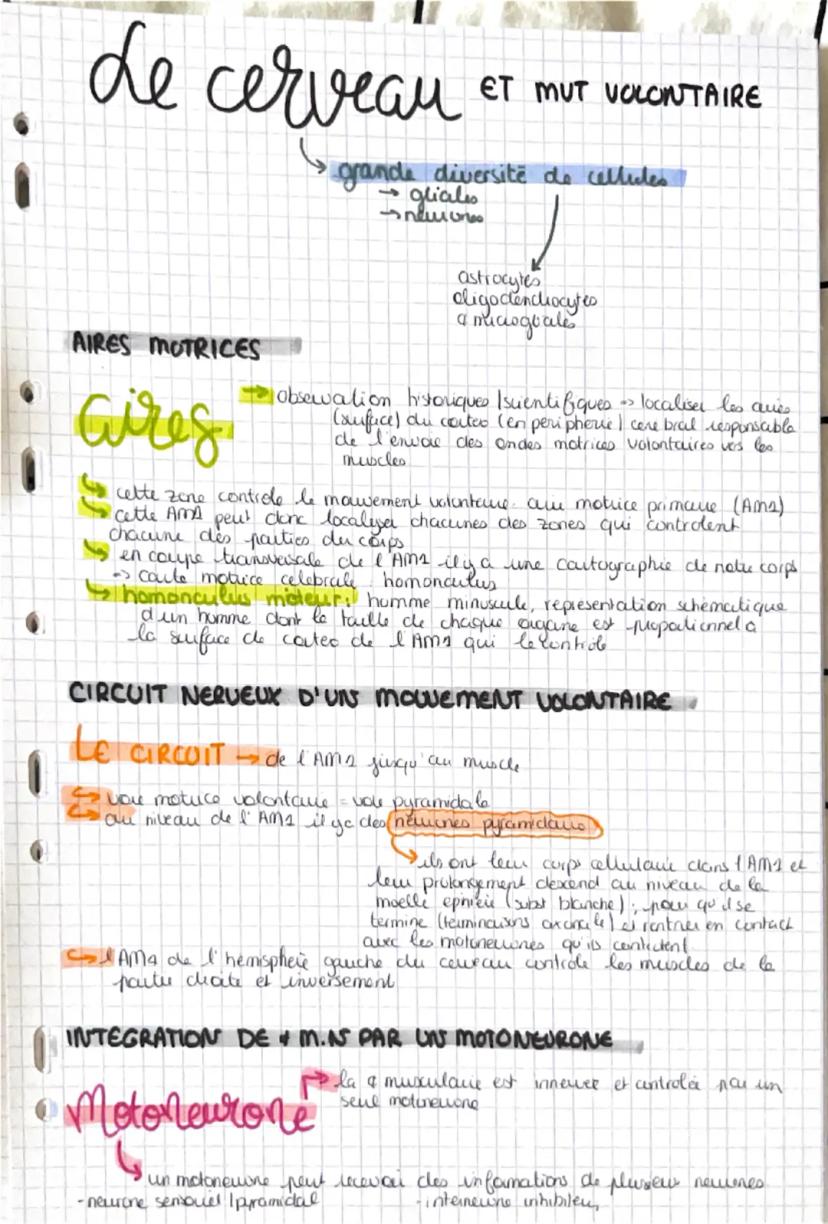 Le cerveau ET MVT VOLONTAIRE
grande diversité de cellules
→ gliales
→ neurones
astrocytes
oligodendrocytes
¢ microgliales
AIRES MOTRICES
aires
→ observation historiques / scientifiques → localiser les aires
(surface) du cortex (en peripherie) cerebral responsable
de l'envoie des ondes motrices volontaires vers les
muscles
cette zone controle le mouvement volontaire : aire motrice primaire (AM1)
cette AM1 peut donc localiser chacunes des zones qui controlent
chacune des parties du corps
en coupe transversale de l'AM1 il y a une cartographie de notre corps
→ carte motrice celebrale : homonculus
homonculus moteur : homme minuscule, representation schematique
d'un homme dont la taille de chaque organe est proportionnel a
la surface de cortex de l'AM1 qui le controle
CIRCUIT NERVEUX D'UN MOUVEMENT VOLONTAIRE
LE CIRCUIT → de l'AM1 jusqu'au muscle
voie motrice volontaire = voie pyramidale
au niveau de l'AM1 il y a des neurones pyramidaux
ils ont leur corps cellulaire dans l'AM1 et
leur prolongement descend au niveau de la
moelle epiniere (subst blanche) ; pour qu'il se
termine (terminaisons axonale) et rentrer en contact
avec les motoneurones qu'ils contictent
l'AM1 de l'hemisphere gauche du cerveau controle les muscles de la
partie droite et inversement
INTEGRATION DE + M.N PAR UN MOTONEURONE
Motoneurone
→ la ¢ musculaire est innervee et controlée par un
seul motoneurone
un motoneurone peut recevoir des informations de plusieurs neurones
- neurone sensoriel / pyramidal - interneurone inhibiteur,